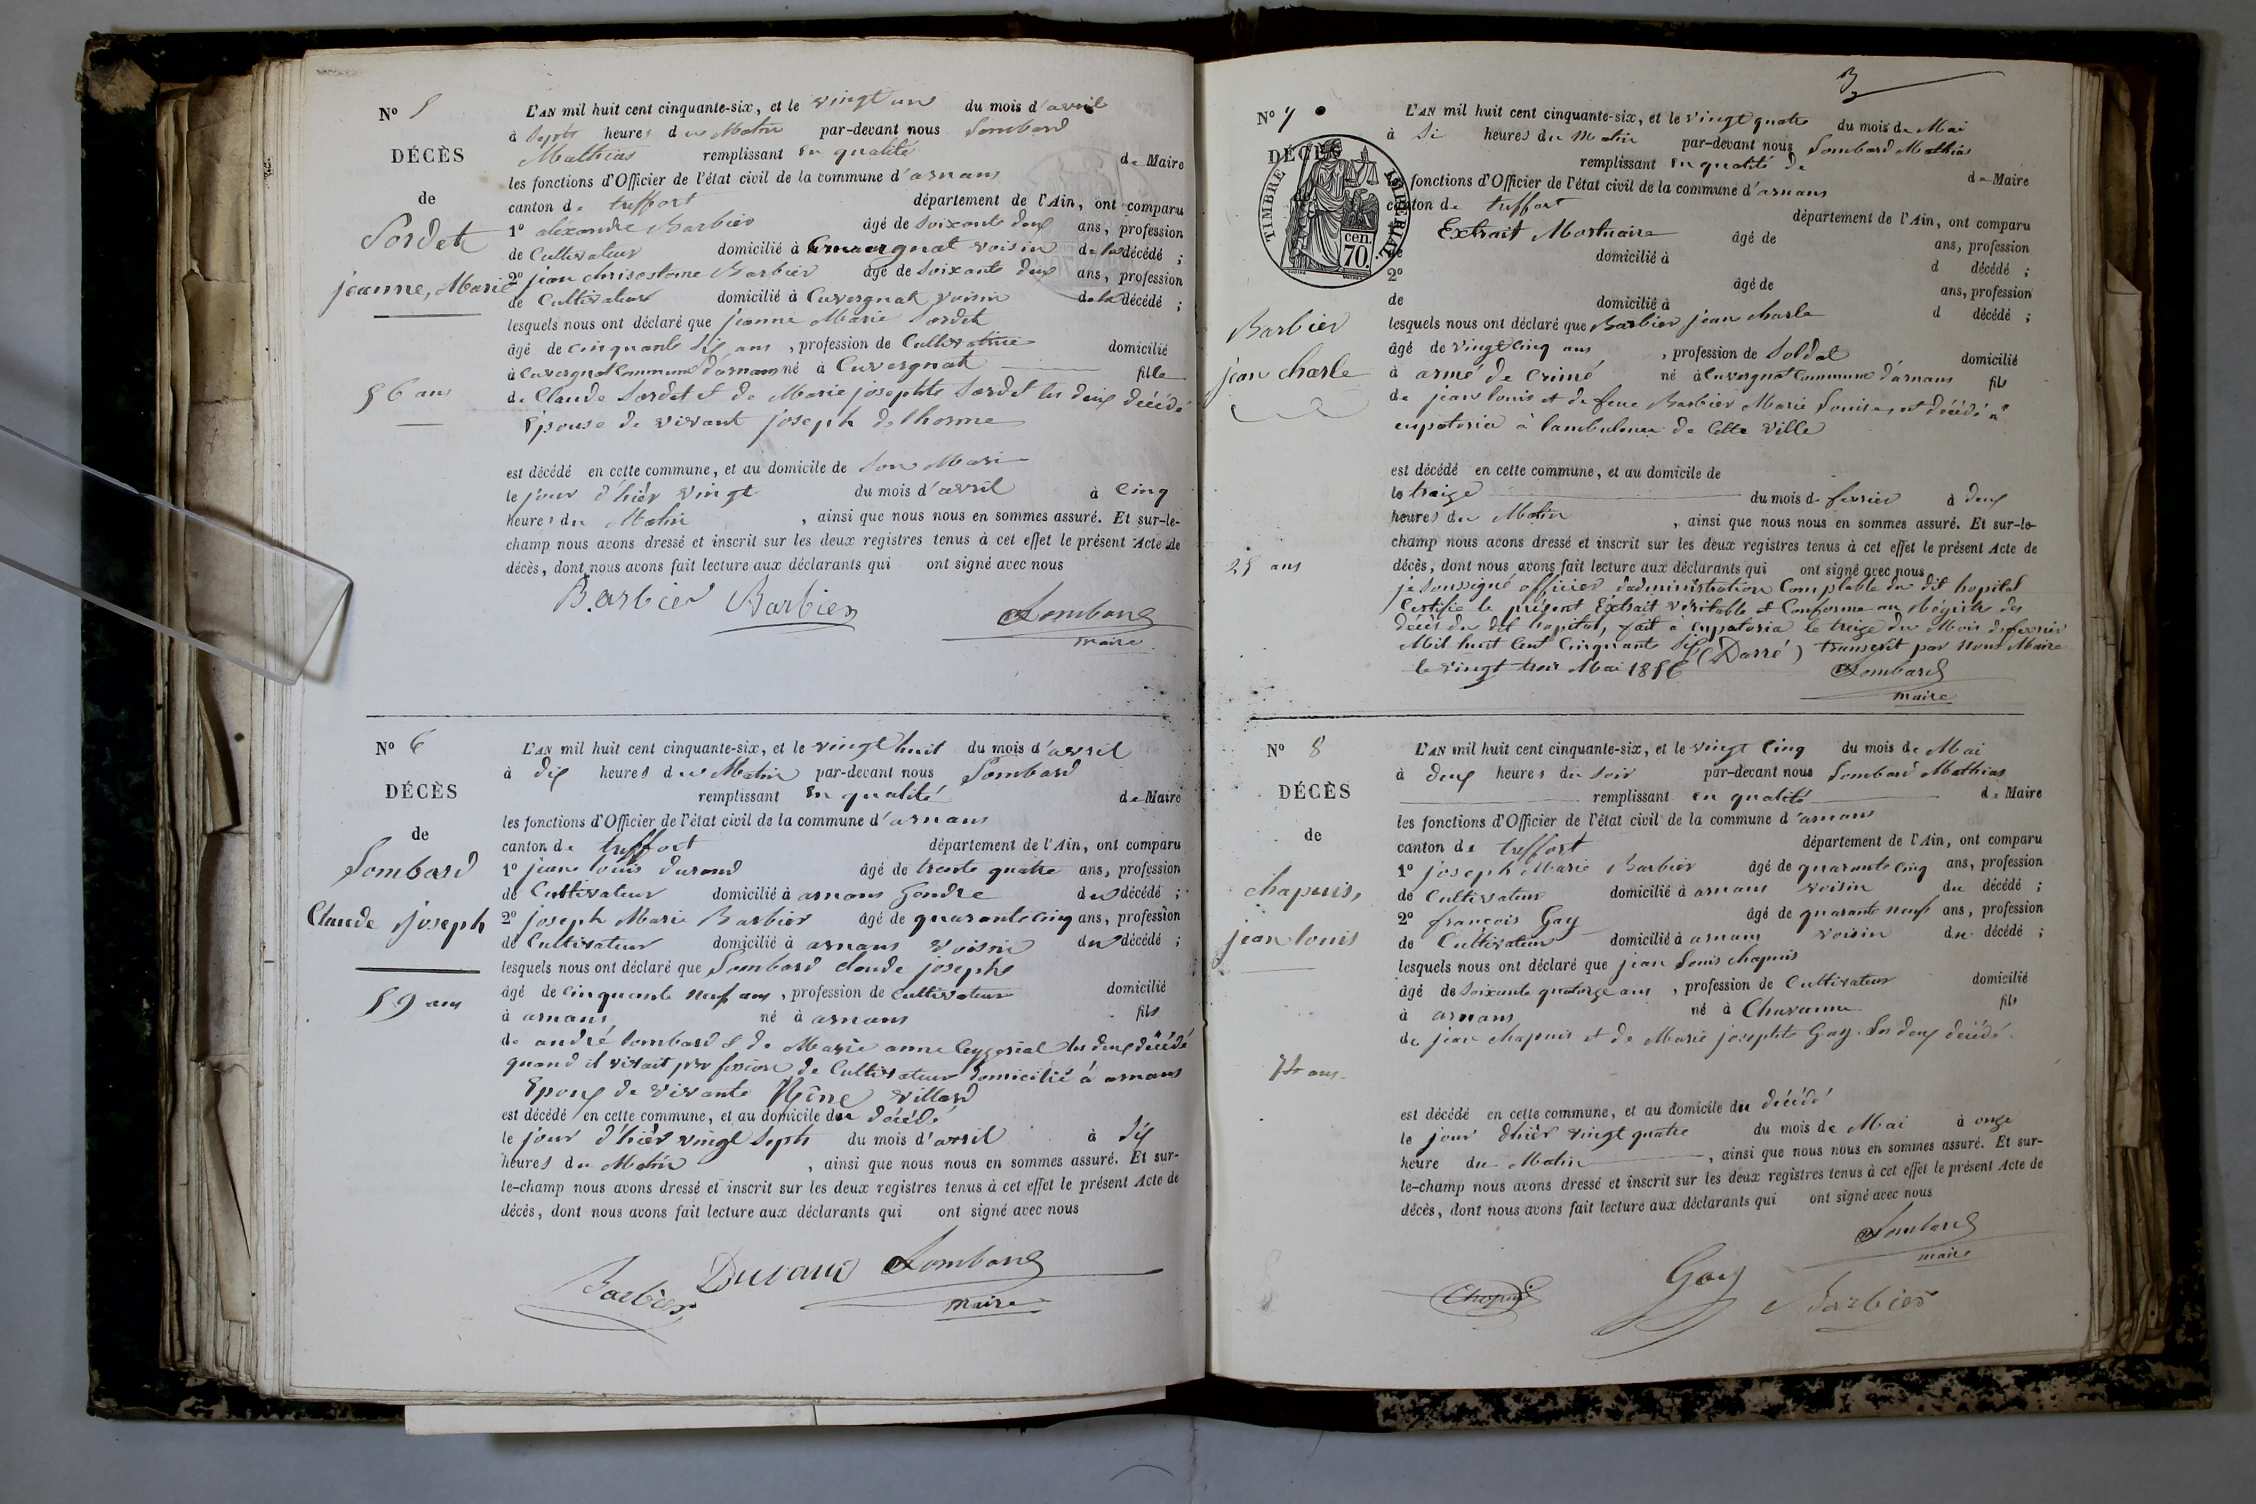 No 5
DÉCÈS
de
Sordet
jeanne, Marie
56 ans
L'AN mil huit cent cinquante-six, et le vingt un du mois d'avril
à sept heures du Matin par-devant nous Lombard
Mathias remplissant en qualité de Maire
les fonctions d'Officier de l'état civil de la commune d'arnans
canton de treffort département de l'Ain, ont comparu
1º alexandre Barbier âgé de Soixante deux ans, profession
de Cultivateur domicilié à Cuvergnat voisin de la décédé ;
2º jean chrisostome Barbier âgé de Soixante deux ans, profession
de Cultivateur domicilié à Cuvergnat voisin de la décédé ;
lesquels nous ont déclaré que jeanne Marie Sordet
âgé de cinquante Six ans , profession de Cultivatrice domicilié
à Cuvergnat Commune d'arnans né à Cuvergnat fille
de Claude Sordet et de Marie josephte Sordet les deux décédé
Epouse de vivant joseph delhorme
est décédé en cette commune, et au domicile de Son Mari
le jour d'hièr vingt du mois d'avril à Cinq
heures du Matin , ainsi que nous nous en sommes assuré. Et sur-le-
champ nous avons dressé et inscrit sur les deux registres tenus à cet effet le présent Acte de
décès, dont nous avons fait lecture aux déclarants qui ont signé avec nous
Barbier Barbier Lombard
maire
No 6
DÉCÈS
de
Lombard
Claude joseph
59 ans
L'AN mil huit cent cinquante-six, et le vingt huit du mois d'avril
à dix heures du Matin par-devant nous Lombard
remplissant en qualité de Maire
les fonctions d'Officier de l'état civil de la commune d'arnans
canton de treffort département de l'Ain, ont comparu
1º jean louis durand âgé de trente quatre ans, profession
de Cultivateur domicilié à arnans Gendre du décédé ;
2º joseph Marie Barbier âgé de quarante Cinq ans, profession
de Cultivateur domicilié à arnans voisin du décédé ;
lesquels nous ont déclaré que Lombard claude joseph
âgé de cinquante neuf ans , profession de cultivateur domicilié
à arnans né à arnans fils
de andré Lombard et de Marie anne les deux décédé
quand il vivait profession de Cultivateur domicilié à arnans
Epoux de vivante villard
est décédé en cette commune, et au domicile du décédé
le jour d'hièr vingt Sept du mois d'avril à Six
heures du Matin , ainsi que nous nous en sommes assuré. Et sur-
le-champ nous avons dressé et inscrit sur les deux registres tenus à cet effet le présent Acte de
décès, dont nous avons fait lecture aux déclarants qui ont signé avec nous
Barbier Durand Lombard
maire
3
No 7
DÉCÈS
TIMBRE IMPÉRIAL
70 cen.
Barbier
jean charle
25 ans
L'AN mil huit cent cinquante-six, et le vingt quatre du mois de Mai
à Si heures du Matin par-devant nous Lombard Mathias
remplissant en qualité de de Maire
fonctions d'Officier de l'état civil de la commune d'arnans
canton de treffort département de l'Ain, ont comparu
Extrait Mortuaire âgé de ans, profession
de domicilié à d décédé ;
2º âgé de ans, profession
de domicilié à d décédé ;
lesquels nous ont déclaré que Barbier jean charle
âgé de vingt Cinq ans , profession de Soldat domicilié
à armé de crimé né à Cuvergnat Commune d'arnans fils
de jean louis et de feue Barbier Marie Louise, est décédé a
eupatoria à lambulance de Cette Ville
est décédé en cette commune, et au domicile de
le traize du mois de fevrier à deux
heures du Matin , ainsi que nous nous en sommes assuré. Et sur-le-
champ nous avons dressé et inscrit sur les deux registres tenus à cet effet le présent Acte de
décès, dont nous avons fait lecture aux déclarants qui ont signé avec nous
je Soussigné officier d'administration Comptable du dit hopital
Certifie le présent Extrait véritable et Conforme au Régistre des
décès du dit hopital, fait à Eupatoria le treize du Mois de fevrier
Mil huit Cent Cinquante Six (Darré) transcrit par Nous Maire
le vingt trois Mai 1856 Lombard
maire
No 8
DÉCÈS
de
chapuis,
jean louis
74 ans
L'AN mil huit cent cinquante-six, et le vingt Cinq du mois de Mai
à deux heures du Soir par-devant nous Lombard Mathias
remplissant en qualité de Maire
les fonctions d'Officier de l'état civil de la commune d'arnans
canton de treffort département de l'Ain, ont comparu
1º joseph Marie Barbier âgé de quarante Cinq ans, profession
de Cultivateur domicilié à arnans voisin du décédé ;
2º françois Gay âgé de quarante neuf ans, profession
de Cultivateur domicilié à arnans voisin du décédé ;
lesquels nous ont déclaré que jean Louis chapuis
âgé de Soixante quatorze ans , profession de Cultivateur domicilié
à arnans né à Chavanne fils
de jean chapuis et de Marie josephte Gay les deux décédé
est décédé en cette commune, et au domicile du décédé
le jour d'hièr vingt quatre du mois de Mai à onze
heure du Matin , ainsi que nous nous en sommes assuré. Et sur-
le-champ nous avons dressé et inscrit sur les deux registres tenus à cet effet le présent Acte de
décès, dont nous avons fait lecture aux déclarants qui ont signé avec nous
Lombard
maire
Chapuis Gay Barbier